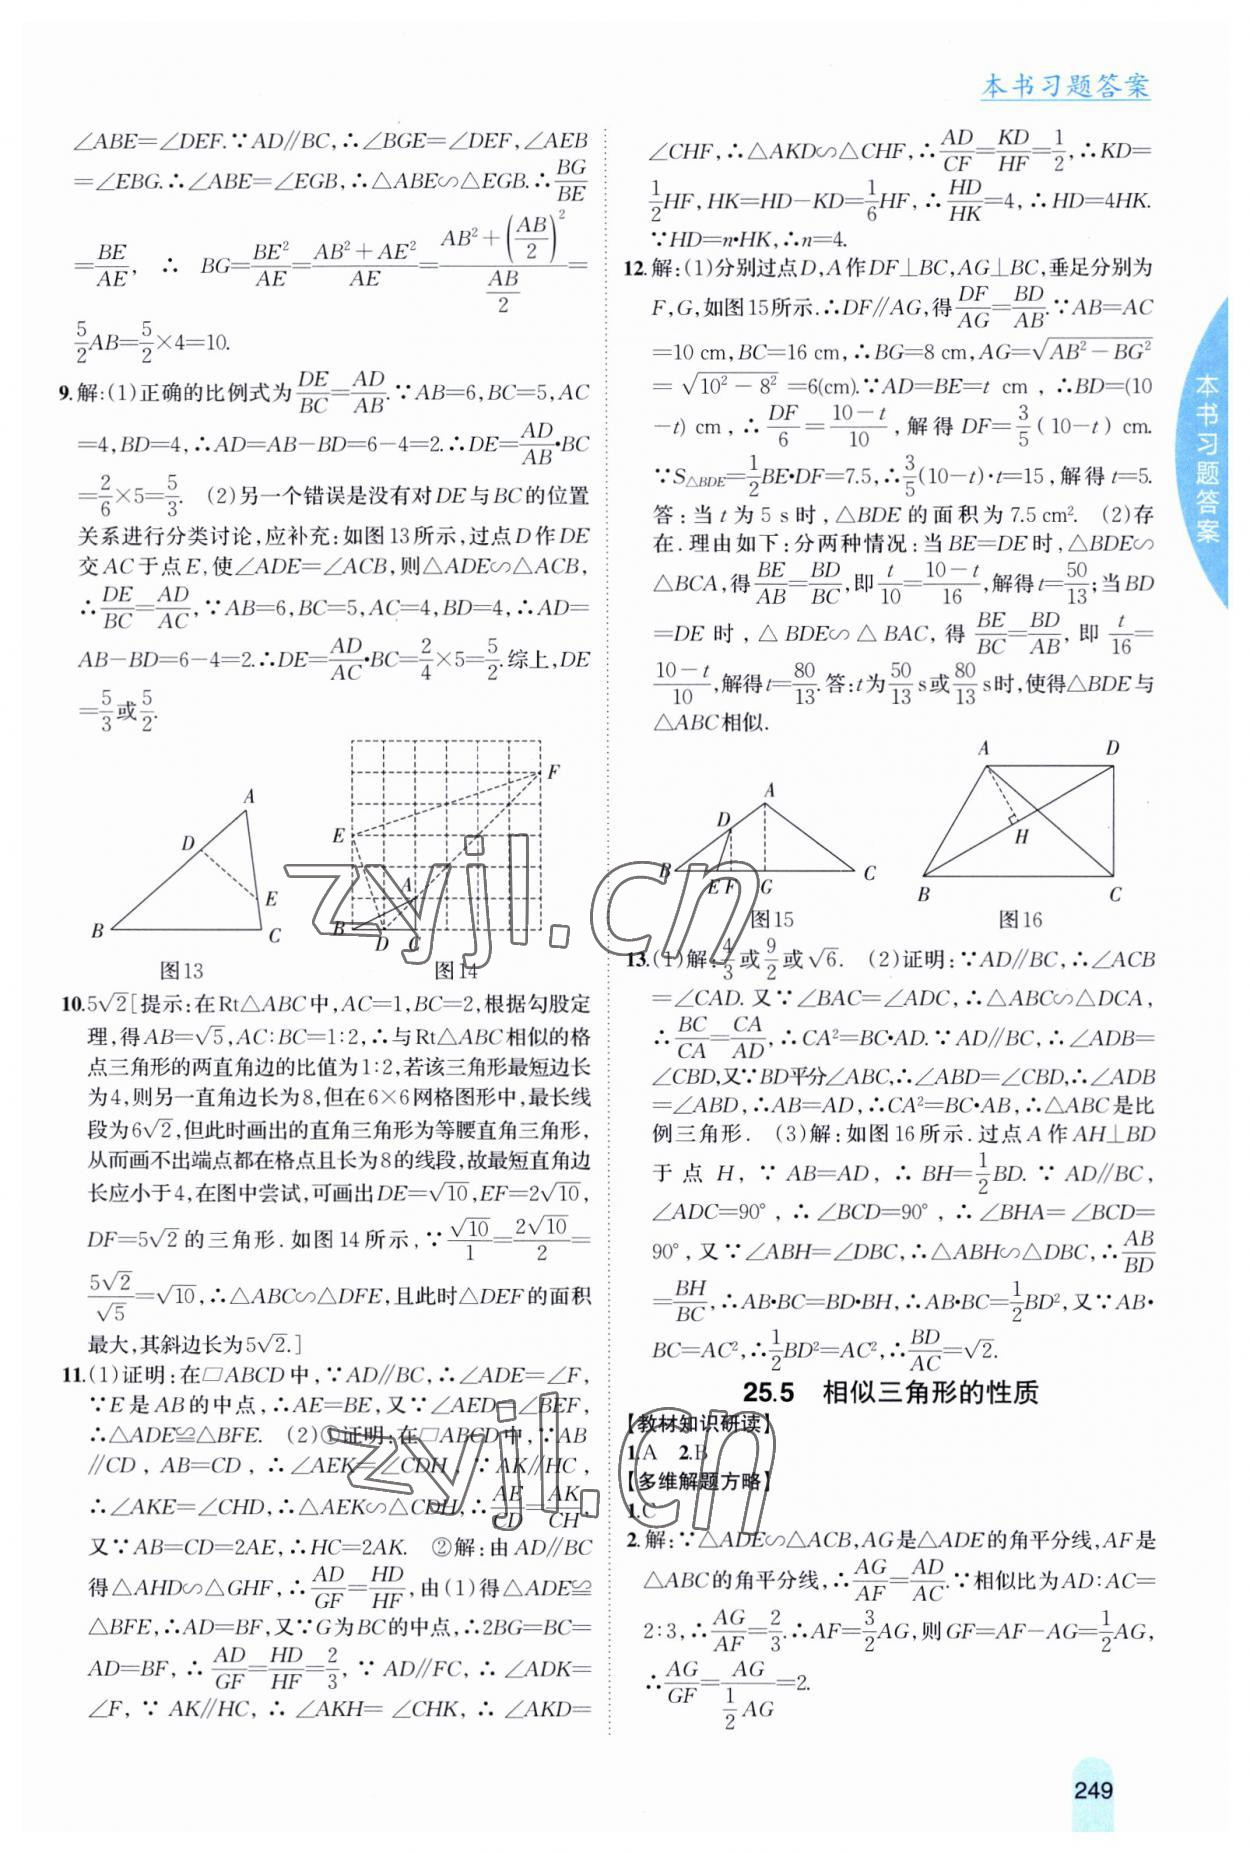 本书习题答案
∠ABE=∠DEF.∵AD∥BC,∴∠BGE=∠DEF,∠AEB
=∠EBG.∴∠ABE=∠EGB,∴△ABE∽△EGB.∴BG/BE
=BE/AE, ∴ BG=BE²/AE=(AB²+AE²)/AE=(AB²+(AB/2)²)/(AB/2)=
5/2AB=5/2×4=10.
9.解:(1)正确的比例式为DE/BC=AD/AB.∵AB=6,BC=5,AC
=4,BD=4,∴AD=AB-BD=6-4=2.∴DE=AD/AB•BC
=2/6×5=5/3. (2)另一个错误是没有对DE与BC的位置
关系进行分类讨论,应补充:如图13所示,过点D作DE
交AC于点E,使∠ADE=∠ACB,则△ADE∽△ACB,
∴DE/BC=AD/AC,∵AB=6,BC=5,AC=4,BD=4,∴AD=
AB-BD=6-4=2.∴DE=AD/AC•BC=2/4×5=5/2.综上,DE
=5/3或5/2.
A
D
B
E
C
图13
F
E
A
B
D
C
图14
10.5√2[提示:在Rt△ABC中,AC=1,BC=2,根据勾股定
理,得AB=√5,AC:BC=1:2,∴与Rt△ABC相似的格
点三角形的两直角边的比值为1:2,若该三角形最短边长
为4,则另一直角边长为8,但在6×6网格图形中,最长线
段为6√2,但此时画出的直角三角形为等腰直角三角形,
从而画不出端点都在格点且长为8的线段,故最短直角边
长应小于4,在图中尝试,可画出DE=√10,EF=2√10,
DF=5√2的三角形.如图14所示,∵√10/1=2√10/2=
5√2/√5=√10,∴△ABC∽△DFE,且此时△DEF的面积
最大,其斜边长为5√2.]
11.(1)证明:在□ABCD中,∵AD∥BC,∴∠ADE=∠F,
∵E是AB的中点,∴AE=BE,又∵∠AED=∠BEF,
∴△ADE≌△BFE. (2)①证明:在□ABCD中,∵AB
∥CD, AB=CD, ∴∠AEK=∠CDH, ∵AK∥HC,
∴∠AKE=∠CHD,∴△AEK∽△CDH,∴AE/CD=AK/CH,
又∵AB=CD=2AE,∴HC=2AK. ②解:由AD∥BC
得△AHD∽△GHF,∴AD/GF=HD/HF,由(1)得△ADE≌
△BFE,∴AD=BF,又∵G为BC的中点,∴2BG=BC=
AD=BF,∴AD/GF=HD/HF=2/3,∵AD∥FC,∴∠ADK=
∠F,∵AK∥HC,∴∠AKH=∠CHK,∴∠AKD=
∠CHF,∴△AKD∽△CHF,∴AD/CF=KD/HF=1/2,∴KD=
1/2HF,HK=HD-KD=1/6HF,∴HD/HK=4,∴HD=4HK.
∵HD=n•HK,∴n=4.
12.解:(1)分别过点D,A作DF⊥BC,AG⊥BC,垂足分别为
F,G,如图15所示.∴DF∥AG,得DF/AG=BD/AB.∵AB=AC
=10 cm,BC=16 cm,∴BG=8 cm,AG=√(AB²-BG²)
=√(10²-8²)=6(cm).∵AD=BE=t cm,∴BD=(10
-t) cm,∴DF/6=(10-t)/10,解得DF=3/5(10-t) cm.
∵S△BDE=1/2BE•DF=7.5,∴3/5(10-t)•t=15,解得t=5.
答:当t为5 s时,△BDE的面积为7.5 cm². (2)存
在.理由如下:分两种情况:当BE=DE时,△BDE∽
△BCA,得BE/AB=BD/BC,即t/10=(10-t)/16,解得t=50/13;当BD
=DE时,△BDE∽△BAC,得BE/BC=BD/AB,即t/16=
(10-t)/10,解得t=80/13.答:t为50/13 s或80/13 s时,使得△BDE与
△ABC相似.
A
D
B
E F
G
C
图15
A
D
H
B
C
图16
13.(1)解:4/3或9/2或√6. (2)证明:∵AD∥BC,∴∠ACB
=∠CAD.又∵∠BAC=∠ADC,∴△ABC∽△DCA,
∴BC/CA=CA/AD,∴CA²=BC•AD.∵AD∥BC,∴∠ADB=
∠CBD,又∵BD平分∠ABC,∴∠ABD=∠CBD,∴∠ADB
=∠ABD,∴AB=AD,∴CA²=BC•AB,∴△ABC是比
例三角形. (3)解:如图16所示.过点A作AH⊥BD
于点H,∵AB=AD,∴BH=1/2BD.∵AD∥BC,
∠ADC=90°,∴∠BCD=90°,∴∠BHA=∠BCD=
90°,又∵∠ABH=∠DBC,∴△ABH∽△DBC,∴AB/BD
=BH/BC,∴AB•BC=BD•BH,∴AB•BC=1/2BD²,又∵AB•
BC=AC²,∴1/2BD²=AC²,∴BD/AC=√2.
25.5 相似三角形的性质
【教材知识研读】
1.A 2.B
【多维解题方略】
1.C
2.解:∵△ADE∽△ACB,AG是△ADE的角平分线,AF是
△ABC的角平分线,∴AG/AF=AD/AC.∵相似比为AD:AC=
2:3,∴AG/AF=2/3.∴AF=3/2AG,则GF=AF-AG=1/2AG,
∴AG/GF=AG/(1/2AG)=2.
本书习题答案
249
zyjl.cn
zyjl.cn